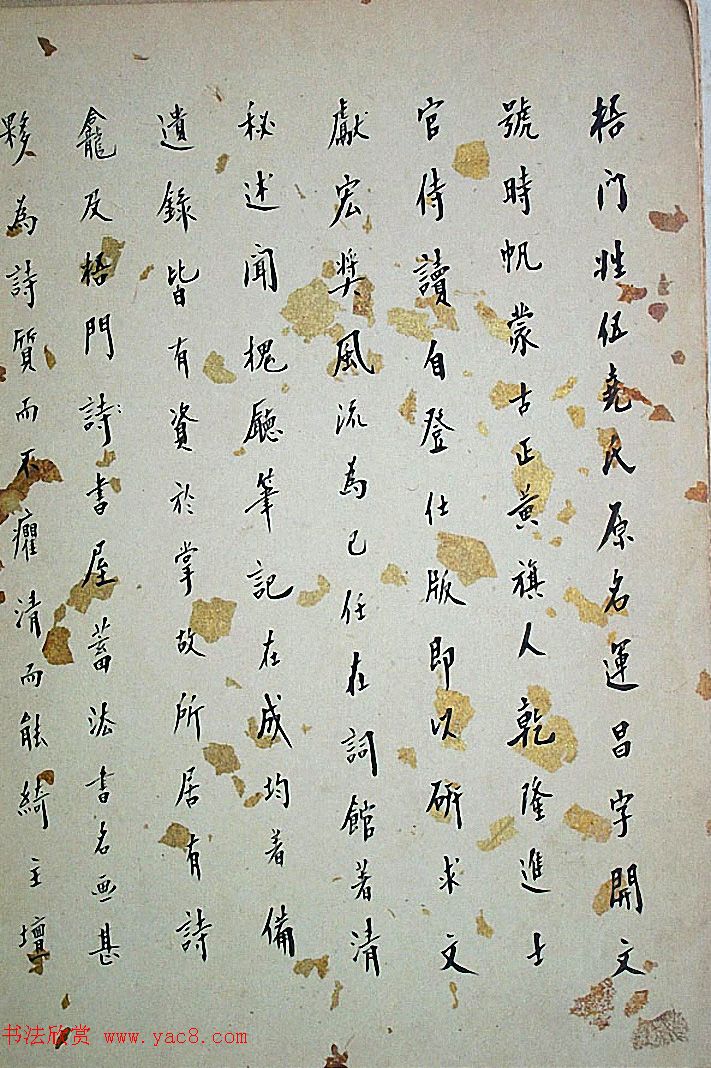 梧门姓伍尭氏原名運昌字開文
號時帆蒙古正黄旗人乾隆進士
官侍讀自登仕版即以研求文
獻宏奬風流為己任在詞館著清
秘述聞槐廳筆記在成均著備
遺錄皆有資於掌故所居有詩
龕及梧門詩書屋蓄法書名画甚
夥為詩質而不癯清而能綺主壇
书法欣赏 www.yac8.com